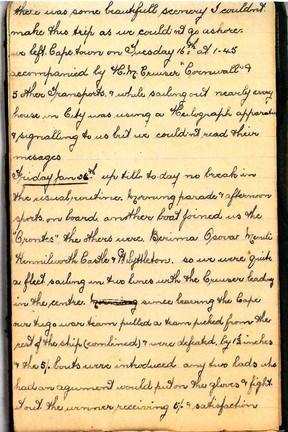 there was some beautifull scenery I couldn't
make this trip as we could'nt go ashore.
we left Cape town on Tuesday 16th at 1-45
accompanied by H.M Cruser "Cornwall" &
5 other Transports. & while sailing out nearly every
house in City was using a Heliograph apparatus
& signalling to us but we could'nt read their
mesages
Friday Jan 26th up till to day no break in
the usual routine. morning parade & afternoon
sports on board another boat joined us the
"Orontes". the others were Berrima Osova Mendi
Kennilworth Castle & Pt Lyttleton. so we were quite
a fleet sailing in two lines with the Cruser leading
in the centre. since leaving the Cape
our tug o war team pulled a team picked from the
rest of the ship (combined) & were defeated by 1½ inches
& the 5/- bouts were introduced any two lads who
had an agument would put on the gloves & fight
it out the winner receiving 5/- & satisfaction